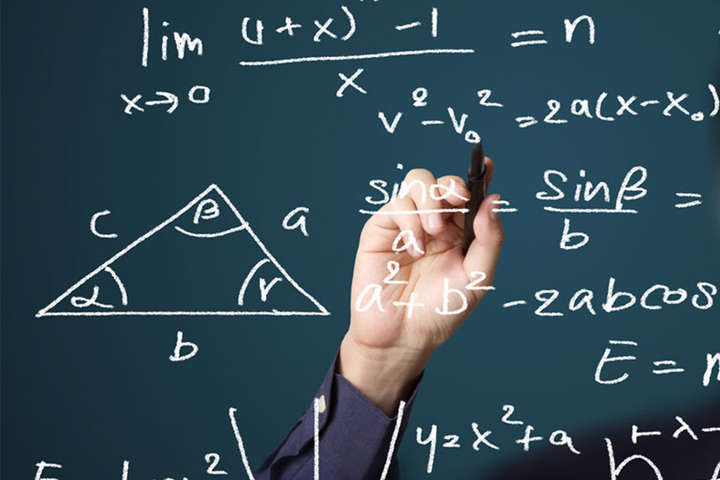 lim (1+x) -1 = n
x→0 x
v²-v₀²=2a(x-x₀)
sinα = sinβ =
a b
c β a
α γ
b
a²+b²-2abcos
E=
y=x²+a